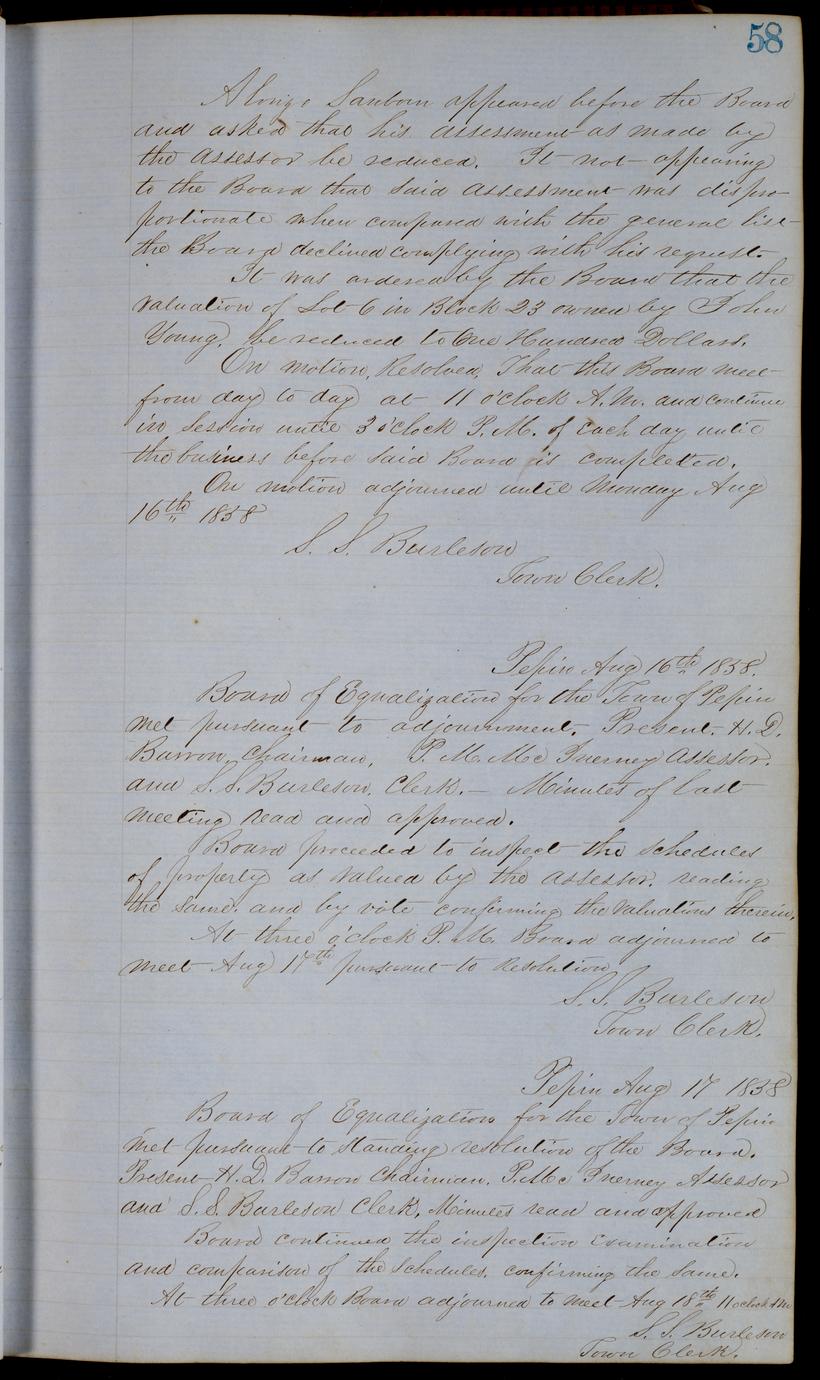 58
Alonzo Sanborn appeared before the Board
and asked that his assessment as made by
the Assessor be reduced. It not appearing
to the Board that said Assessment was dispro-
portionate when compared with the general list
the Board declined complying with his request.
It was ordered by the Board that the
valuation of Lot 6 in Block 23 owned by John
Young, be reduced to One Hundred Dollars.
On motion, Resolved, That this Board meet
from day to day at 11 o'clock A.M. and continue
in session until 3 o'clock P.M. of each day until
the business before said Board is completed.
On motion adjourned until Monday Aug
16th 1858
S. S. Burleson
Town Clerk.
Pepin Aug 16th 1858.
Board of Equalization for the Town of Pepin
met pursuant to adjournment. Present. H. D.
Barron, Chairman, P. M. Mc Inerney Assessor.
and S. S. Burleson, Clerk. — Minutes of last
meeting read and approved.
Board proceeded to inspect the schedules
of property as valued by the Assessor. reading
the same, and by vote confirming the valuations therein.
At three o'clock P. M. Board adjourned to
meet Aug 17th pursuant to Resolution
S. S. Burleson
Town Clerk.
Pepin Aug 17 1858
Board of Equalization for the Town of Pepin
met pursuant to standing resolution of the Board.
Present H. D. Barron Chairman. P. Mc Inerney Assessor
and S. S. Burleson Clerk, Minutes read and approved
Board continued the inspection Examination
and comparison of the Schedules, confirming the same.
At three o'clock Board adjourned to meet Aug 18th 11 oclock AM
S. S. Burleson
Town Clerk.